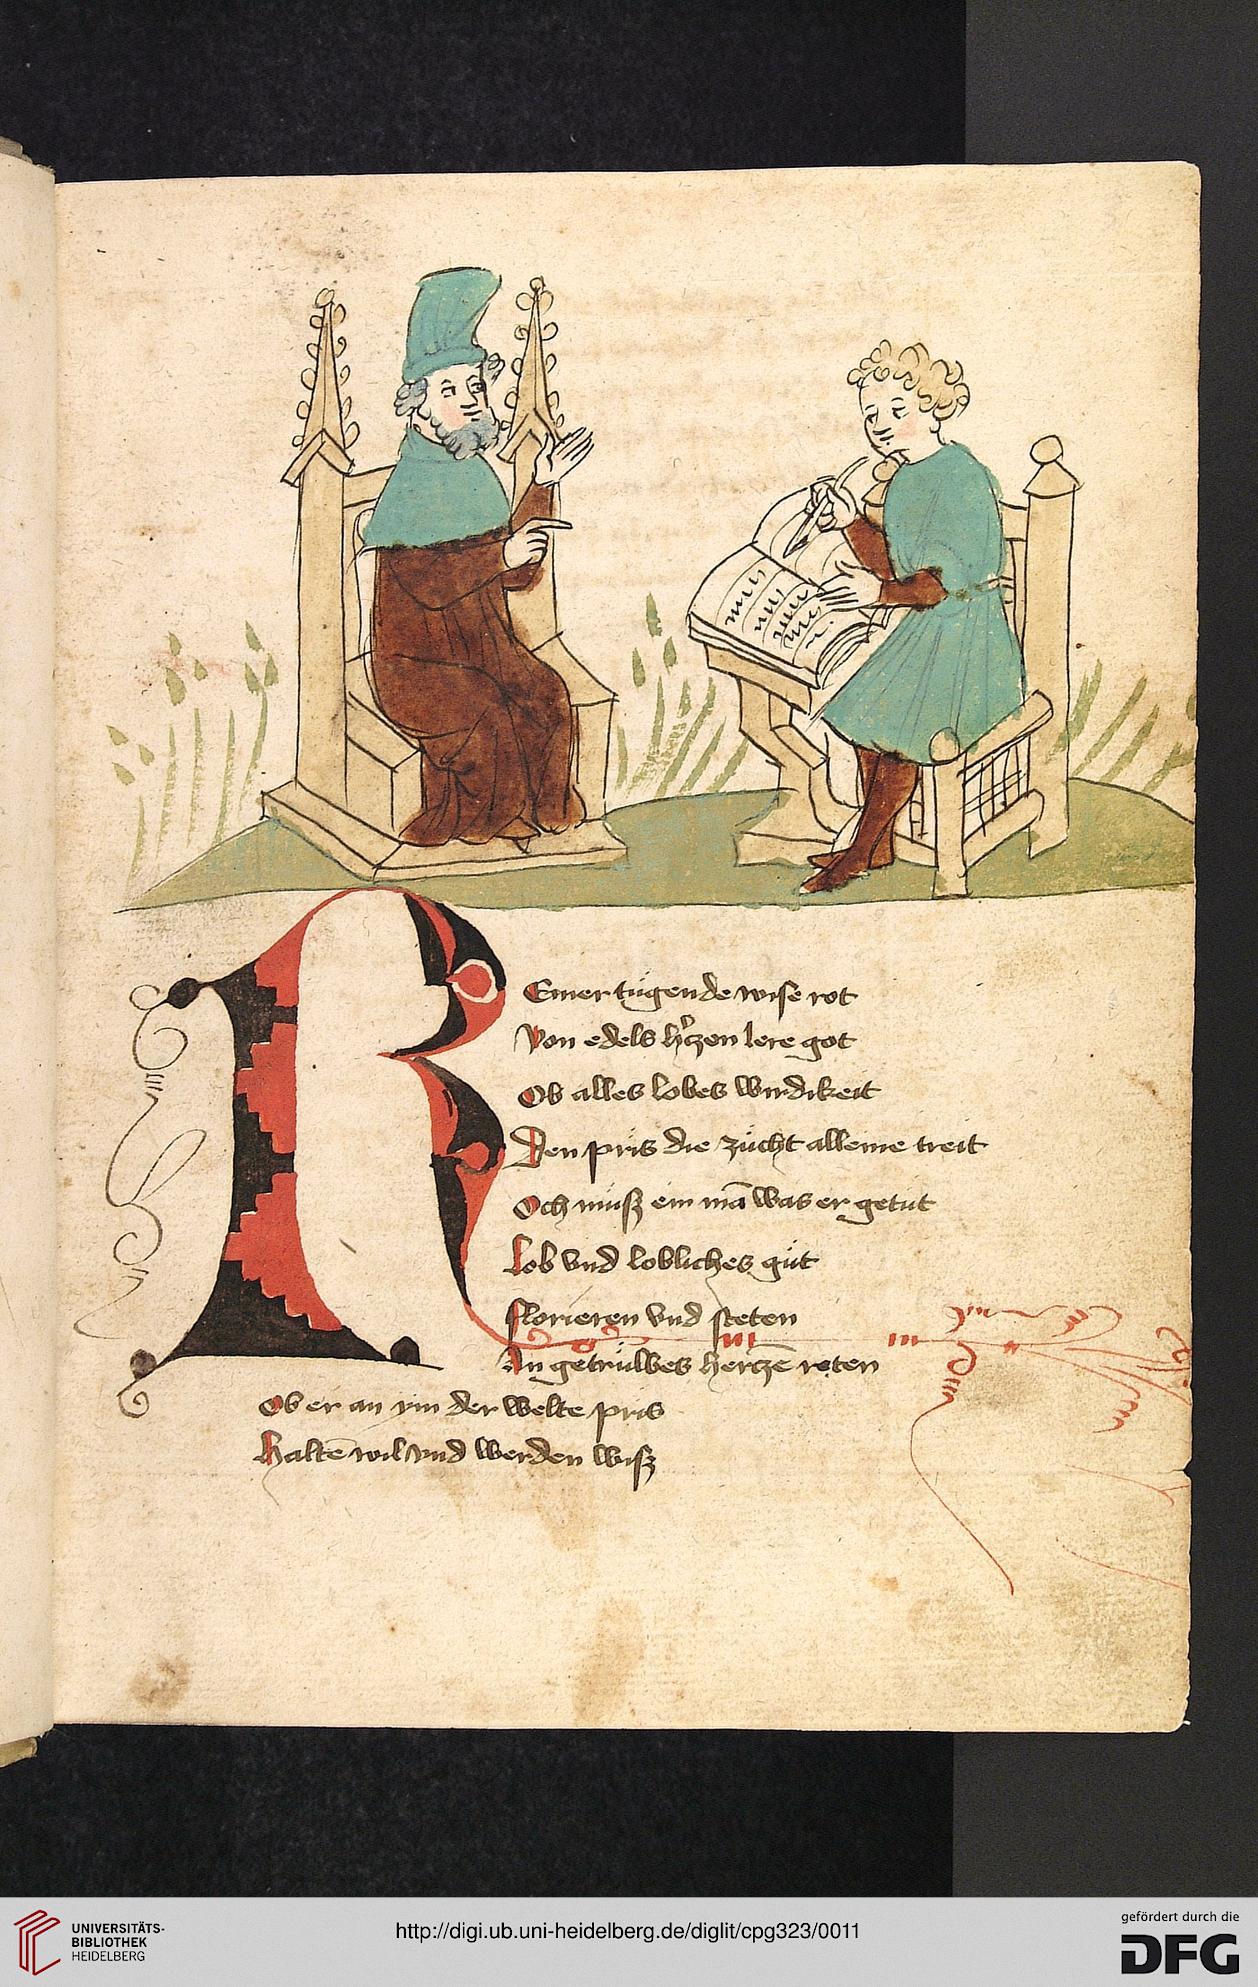 R
Einer tugende wise rot
Von edels hʼzen lere got
Ob alles lobes wirdikeit
Den pris die zücht alleine treit
Och muͦſz ein mā was er getuͦt
Lob vnd lobliches guͦt
florieren vnd steten
An getrüwes hertzē reten
Ob er an ym der welte pris
Haltē wil vnd werden wisz
UNIVERSITÄTS-
BIBLIOTHEK
HEIDELBERG
http://digi.ub.uni-heidelberg.de/diglit/cpg323/0011
gefördert durch die
DFG